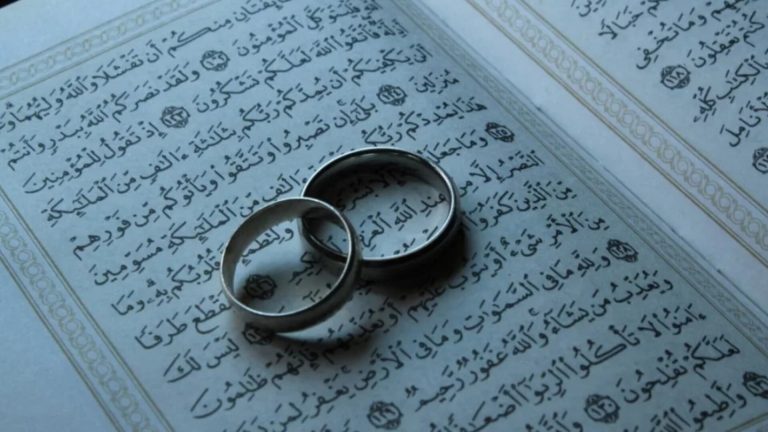 مِنكُمْ أَن تَفْشَلَا وَاللَّهُ وَلِيُّهُمَا
فَلْيَتَوَكَّلِ الْمُؤْمِنُونَ ١٢٢ وَلَقَدْ نَصَرَكُمُ اللَّهُ بِبَدْرٍ وَأَنتُمْ
فَاتَّقُوا اللَّهَ لَعَلَّكُمْ تَشْكُرُونَ ١٢٣ إِذْ تَقُولُ لِلْمُؤْمِنِينَ
أَلَن يَكْفِيَكُمْ أَن يُمِدَّكُمْ رَبُّكُم بِثَلَٰثَةِ ءَالَٰفٍ مِّنَ الْمَلَٰٓئِكَةِ
مُنزَلِينَ ١٢٤ بَلَىٰٓ إِن تَصْبِرُوا وَتَتَّقُوا وَيَأْتُوكُم مِّن فَوْرِهِمْ
هَٰذَا يُمْدِدْكُمْ رَبُّكُم ءَالَٰفٍ مِّنَ الْمَلَٰٓئِكَةِ مُسَوِّمِينَ
١٢٥ وَمَا جَعَلَهُ بُشْرَىٰ وَلِتَطْمَئِنَّ قُلُوبُكُم بِهِ وَمَا
النَّصْرُ إِلَّا مِنْ عِندِ اللَّهِ الْعَزِيزِ ١٢٦ لِيَقْطَعَ طَرَفًا
مِّنَ الَّذِينَ كَفَرُوا لَيْسَ لَكَ
مِنَ الْأَمْرِ شَيْءٌ أَوْ يَتُوبَ عَلَيْهِمْ أَوْ يُعَذِّبَهُمْ فَإِنَّهُمْ ظَٰلِمُونَ
١٢٨ وَلِلَّهِ مَا فِي السَّمَٰوَٰتِ وَمَا فِي الْأَرْضِ يَغْفِرُ لِمَن
وَيُعَذِّبُ مَن يَشَآءُ وَاللَّهُ غَفُورٌ رَّحِيمٌ ١٢٩
ءَامَنُوا لَا تَأْكُلُوا الرِّبَوٰٓا أَضْعَٰفًا
لَعَلَّكُمْ تُفْلِحُونَ ١٣٠
وَأَطِيعُوا اللَّهَ
خَبَالًا
وَمَا تُخْفِي
تَعْقِلُونَ ١١٨
بِالْكِتَٰبِ كُلِّهِ
الْأَنَامِلَ